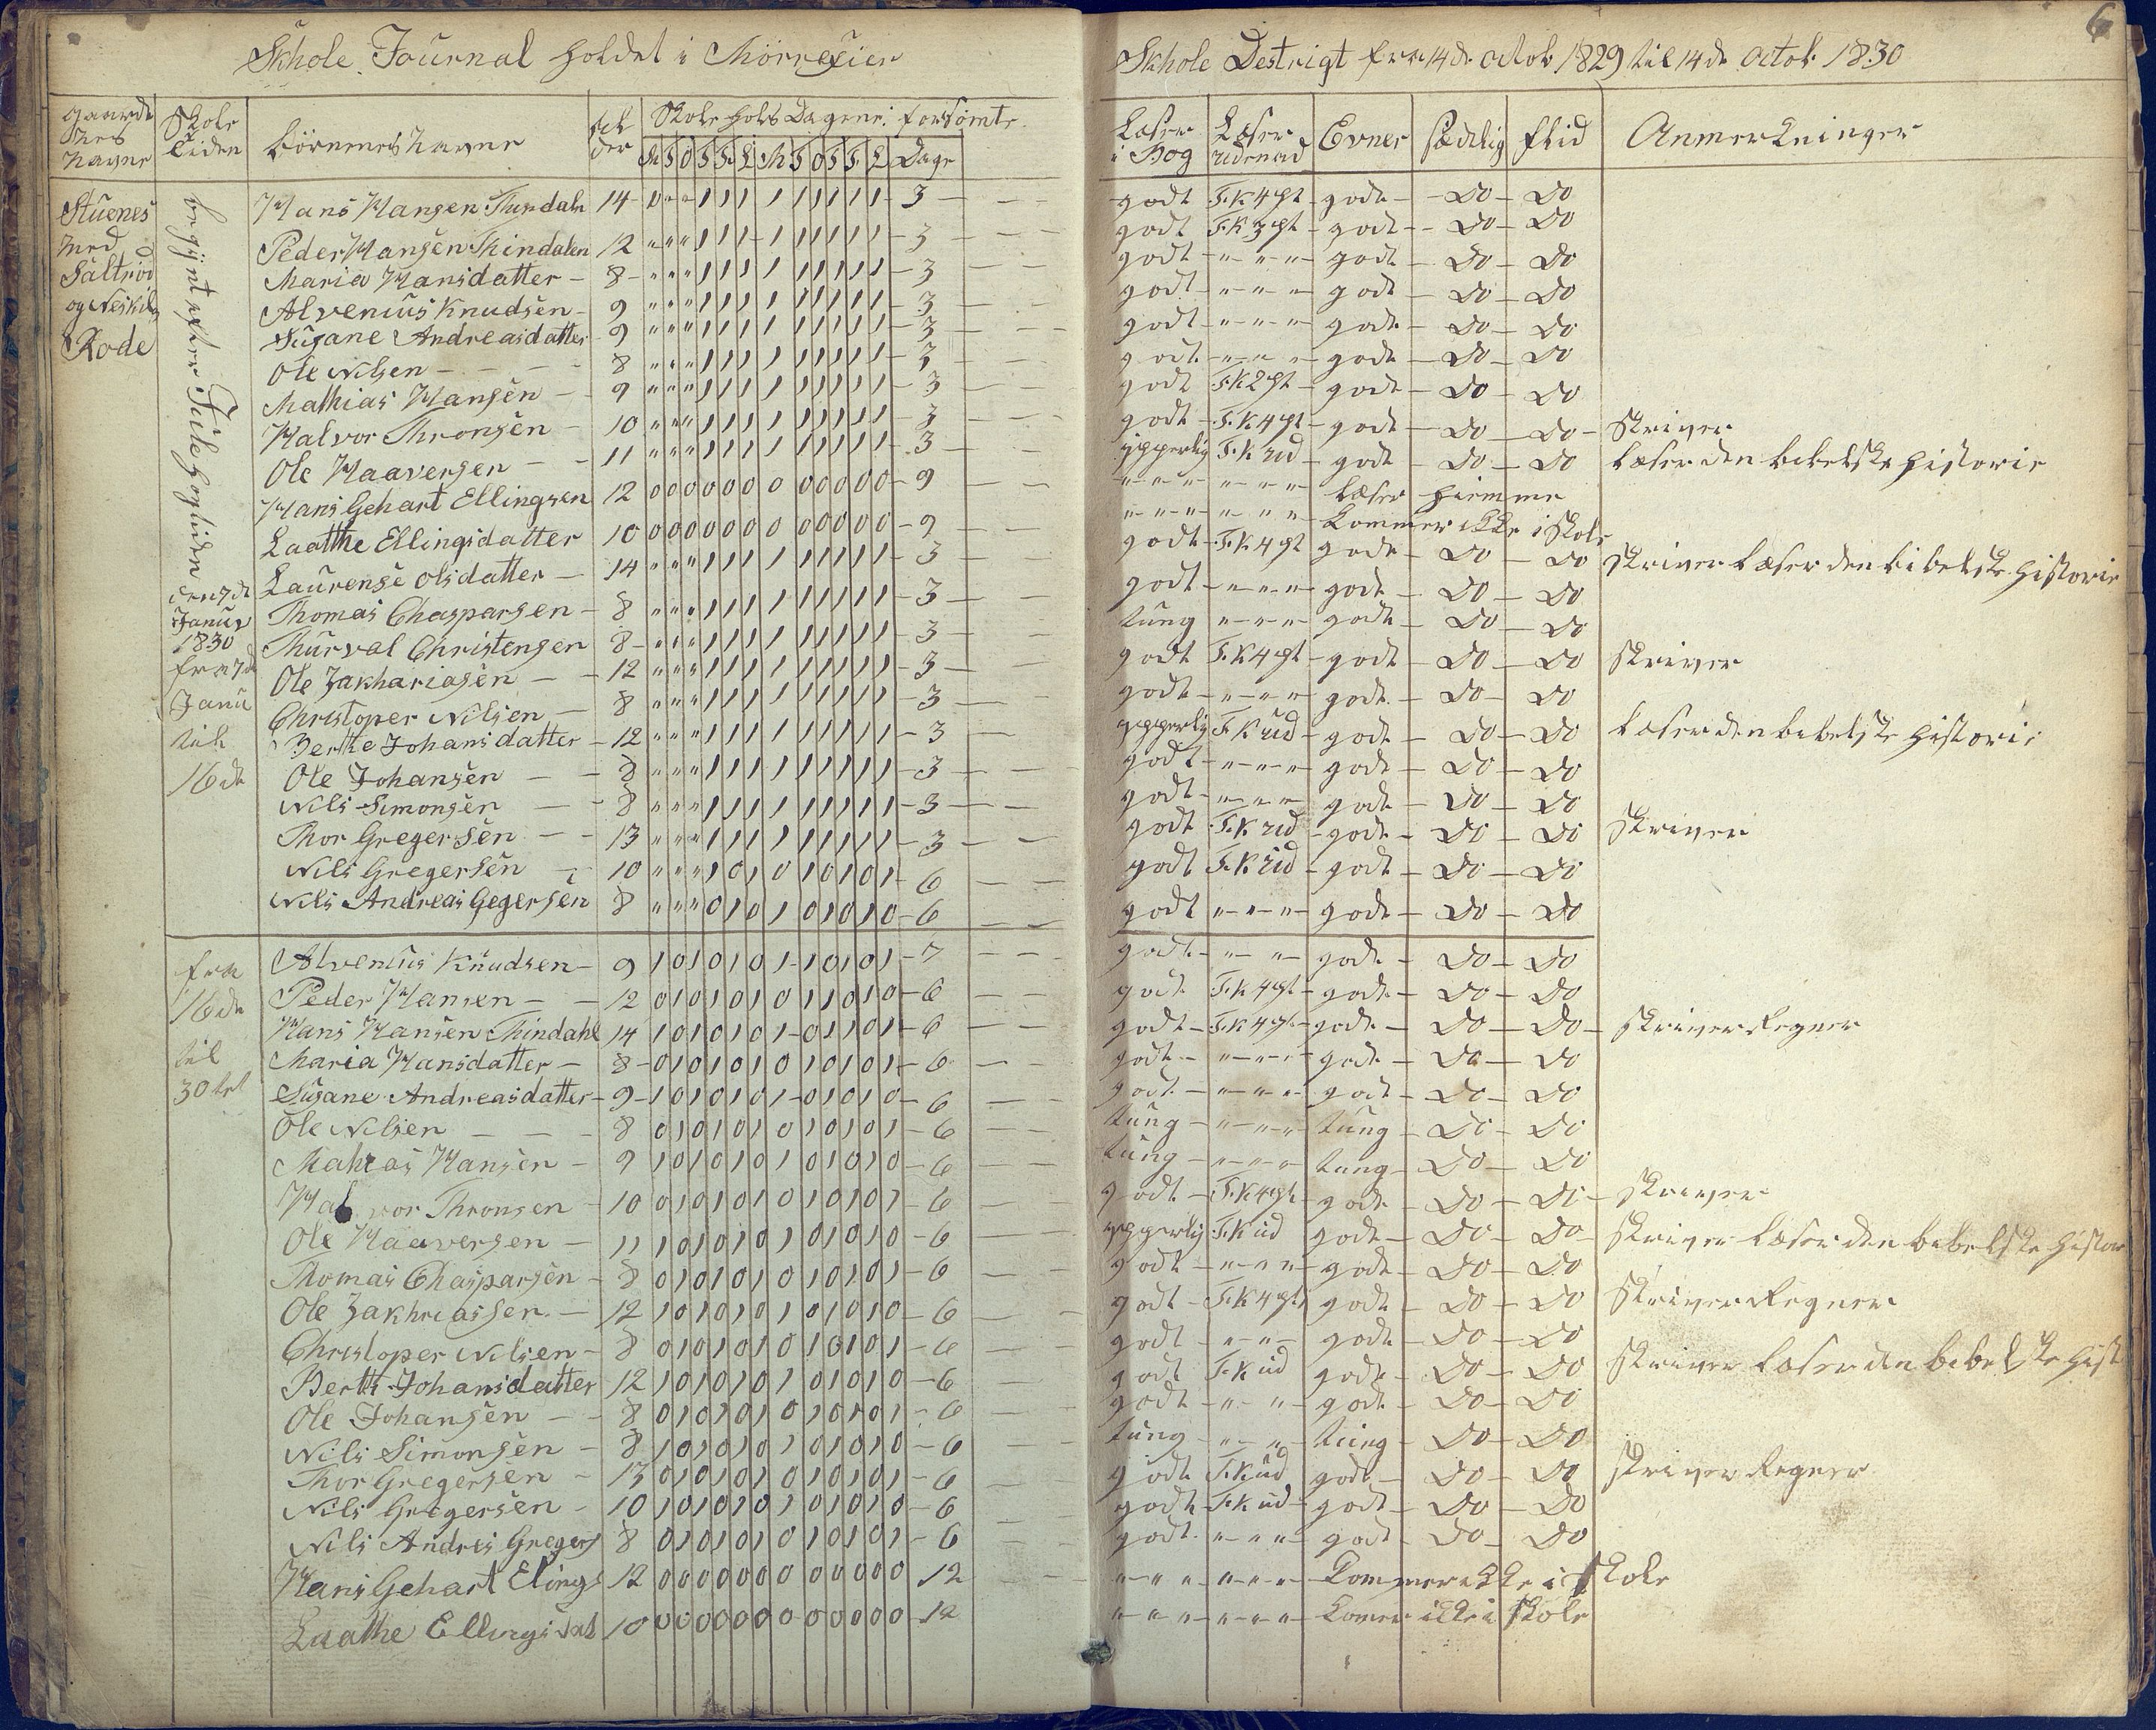 6
Skhole Journal holdet i Mörrefier Skhole Destrigt fra 14de octob 1829 til 14de octob. 1830
gaardenes Navne Skole Tiden börnenes Navne Alder Skole holds Dagene: forsömte Dage Læser i Bog Læser udenad Evner sædelig flid Anmerkninger
M T O T F L M T O T F L
Stuenes med Saltröd og Neskilen Rode
begÿnt efter Jule Høytiden den 7de Januar 1830 fra 7de Janu til 16de
Hans Hansen Thindahl 14 3 godt F.K 4 pt godt Do Do
Peder Hansen Thindalen 12 3 godt F.K 3 pt godt Do Do
Maria Hansdatter 8 3 godt " " " godt Do Do
Alvenius Knudsen 9 3 godt " " " godt Do Do
Susane Andreasdatter 9 3 godt " " " godt Do Do
Ole Nilsen 8 3 godt " " " godt Do Do
Mathias Hansen 9 3 godt F.K 2 pt godt Do Do
Halvor Thronsen 10 3 godt F.K 4 pt godt Do Do Skriver
Ole Haaversen 11 3 ypperlig F.K ud godt Do Do læser den bibelske Historie
Hans Gehart Ellingsen 12 0 0 0 0 0 0 0 0 0 0 0 0 9 " " " " " " læser hiemme
Laatthe Ellingsdatter 10 0 0 0 0 0 0 0 0 0 0 0 0 9 " " " " " " kommer ikke i Skole
Laurense Olsdatter 14 3 godt F.K 4 pt godt Do Do Skriver læser den bibelske Historie
Thomas Chasparsen 8 3 godt " " " godt Do Do
Thurval Christensen 8 3 tung " " " godt Do Do
Ole Zakhariasen 12 3 godt F.K 4 pt godt Do Do Skriver
Christoper Nilsen 8 3 godt " " " godt Do Do
Berthe Johansdatter 12 3 ypperlig F.K ud godt Do Do læser den bibelske Historie
Ole Johansen 8 3 godt " " " godt Do Do
Nils Simonsen 8 3 godt " " " godt Do Do
Thor Gregersen 13 3 godt F.K ud godt Do Do Skriver
Nils Gregersen 10 6 godt F.K ud godt Do Do
Nils Andreas Gegersen 8 6 godt " " " godt Do Do
fra 16de til 30te
Alvenius Knudsen 9 1 0 1 0 1 0 1 1 0 1 0 1 7 godt " " " godt Do Do
Peder Hansen 12 0 1 0 1 0 1 0 1 1 0 1 0 6 godt F.K 4 pt godt Do Do
Hans Hansen Thindahl 14 1 0 1 0 1 0 1 0 1 1 0 1 6 godt F.K 4 pt godt Do Do Skriver Regner
Maria Hansdatter 8 0 1 0 1 0 1 0 1 0 1 0 1 6 godt " " " godt Do Do
Susane Andreasdatter 9 1 0 1 0 1 0 1 0 1 0 1 0 6 godt " " " godt Do Do
Ole Nilsen 8 0 1 0 1 0 1 0 1 0 1 0 1 6 tung " " " tung Do Do
Mahias Hansen 9 1 0 1 0 1 0 1 0 1 0 1 0 6 tung " " " tung Do Do
Halvor Thronsen 10 0 1 0 1 0 1 0 1 0 1 0 1 6 godt F.K 4 pt godt Do Do Skriver
Ole Haaversen 11 1 0 1 0 1 0 1 0 1 0 1 0 6 ypperlig F.K ud godt Do Do Skriver læser den bibelske Histor
Thomas Chasparsen 8 0 1 0 1 0 1 0 1 0 1 0 1 6 godt " " " godt Do Do
Ole Zakhriassen 12 1 0 1 0 1 0 1 0 1 0 1 0 6 godt F.K 4 pt godt Do Do Skriver Regner
Christoper Nilsen 8 0 1 0 1 0 1 0 1 0 1 0 1 6 godt " " " godt Do Do
Berthe Johansdatter 12 1 0 1 0 1 0 1 0 1 0 1 0 6 godt F.K ud godt Do Do Skriver læser den bibelske Hist
Ole Johansen 8 0 1 0 1 0 1 0 1 0 1 0 1 6 godt " " " godt Do Do
Nils Simonsen 8 1 0 1 0 1 0 1 0 1 0 1 0 6 tung " " " tung Do Do
Thor Gregersen 13 0 1 0 1 0 1 0 1 0 1 0 1 6 godt F.K ud godt Do Do Skriver Regner
Nils Gregersen 10 1 0 1 0 1 0 1 0 1 0 1 0 6 godt F.K ud godt Do Do
Nils Andres Gregers 8 0 1 0 1 0 1 0 1 0 1 0 1 6 godt " " " godt Do Do
Hans Gehart Elings 12 0 0 0 0 0 0 0 0 0 0 0 0 12 " " " " " " kommer ikke i Skole
Laathe Ellingsdat 10 0 0 0 0 0 0 0 0 0 0 0 0 12 " " " " " " komer ikke i Skole